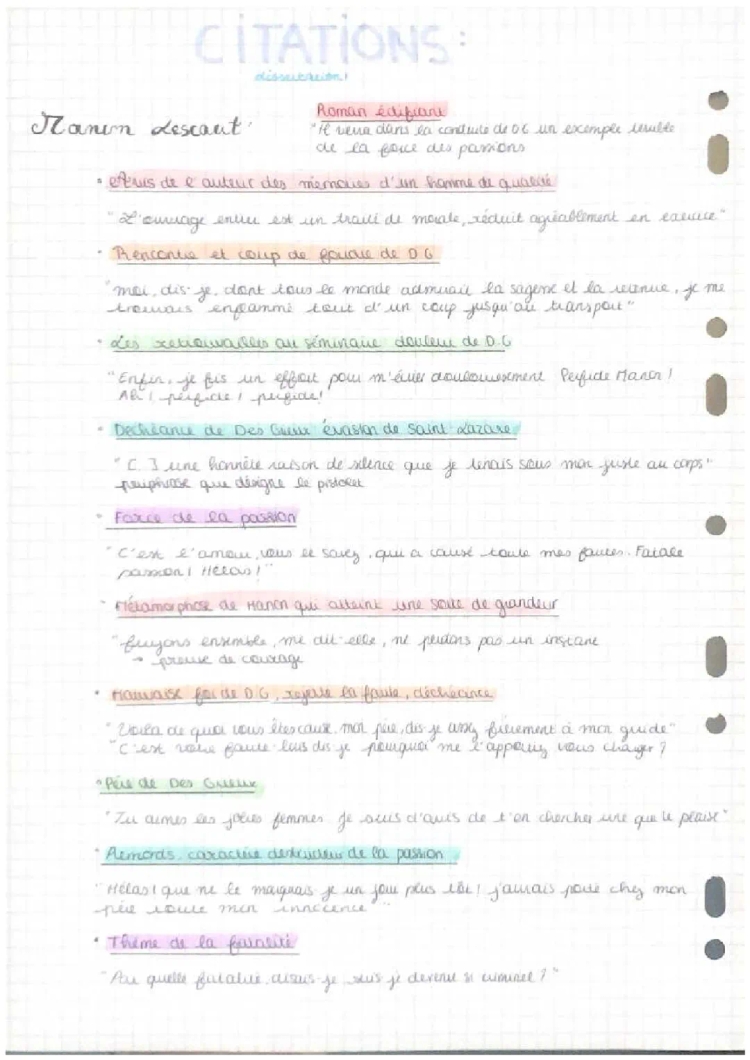 CITATIONS:
dissertation!
Roman édifiant
Manon Lescaut
"Il verra dans la conduite de DG un exemple terrible
de la force des passions
• Avis de l'auteur des mémoires d'un homme de qualité
"L'ouvrage entier est un traité de morale, réduit agréablement en exercice"
• Rencontre et coup de foudre de DG
"moi, dis-je, dont tous le monde admirait la sagesse et la retenue, je me
trouvais enflammé tout d'un coup jusqu'au transport"
• Les retrouvailles au séminaire douleur de D.G
"Enfin, je fis un effort pour m'écrier douloureusement Perfide Manon!
Ah! perfide! perfide!
• Déchéance de Des Grieux évasion de Saint-Lazare
"[...] une honnête raison de silence que je tenais sous mon juste au corps"
périphrase que désigne le pistolet
• Force de la passion
"C'est l'amour, vous le savez, qui a causé toute mes fautes. Fatale
passion! Hélas!"
• Métamorphose de Manon qui atteint une sorte de grandeur
"fuyons ensemble, me dit-elle, ne perdons pas un instant
→ preuve de courage
• Mauvaise foi de DG, rejette la faute, déchéance
"Voilà de quoi vous êtes cause, mon père, dis-je assez fièrement à mon guide"
"C'est votre faute luis dis-je pourquoi me l'apportiez vous chargé?
• Père de Des Grieux
"Tu aimes les jolies femmes. Je suis d'avis de t'en chercher une que te plaise"
• Remords, caractère destructeur de la passion
"Hélas! que ne le marquais-je un jour plus tôt! j'aurais porté chez mon
père toute mon innocence"
• Thème de la fatalité
"Par quelle fatalité, disais-je suis-je devenu si criminel?"